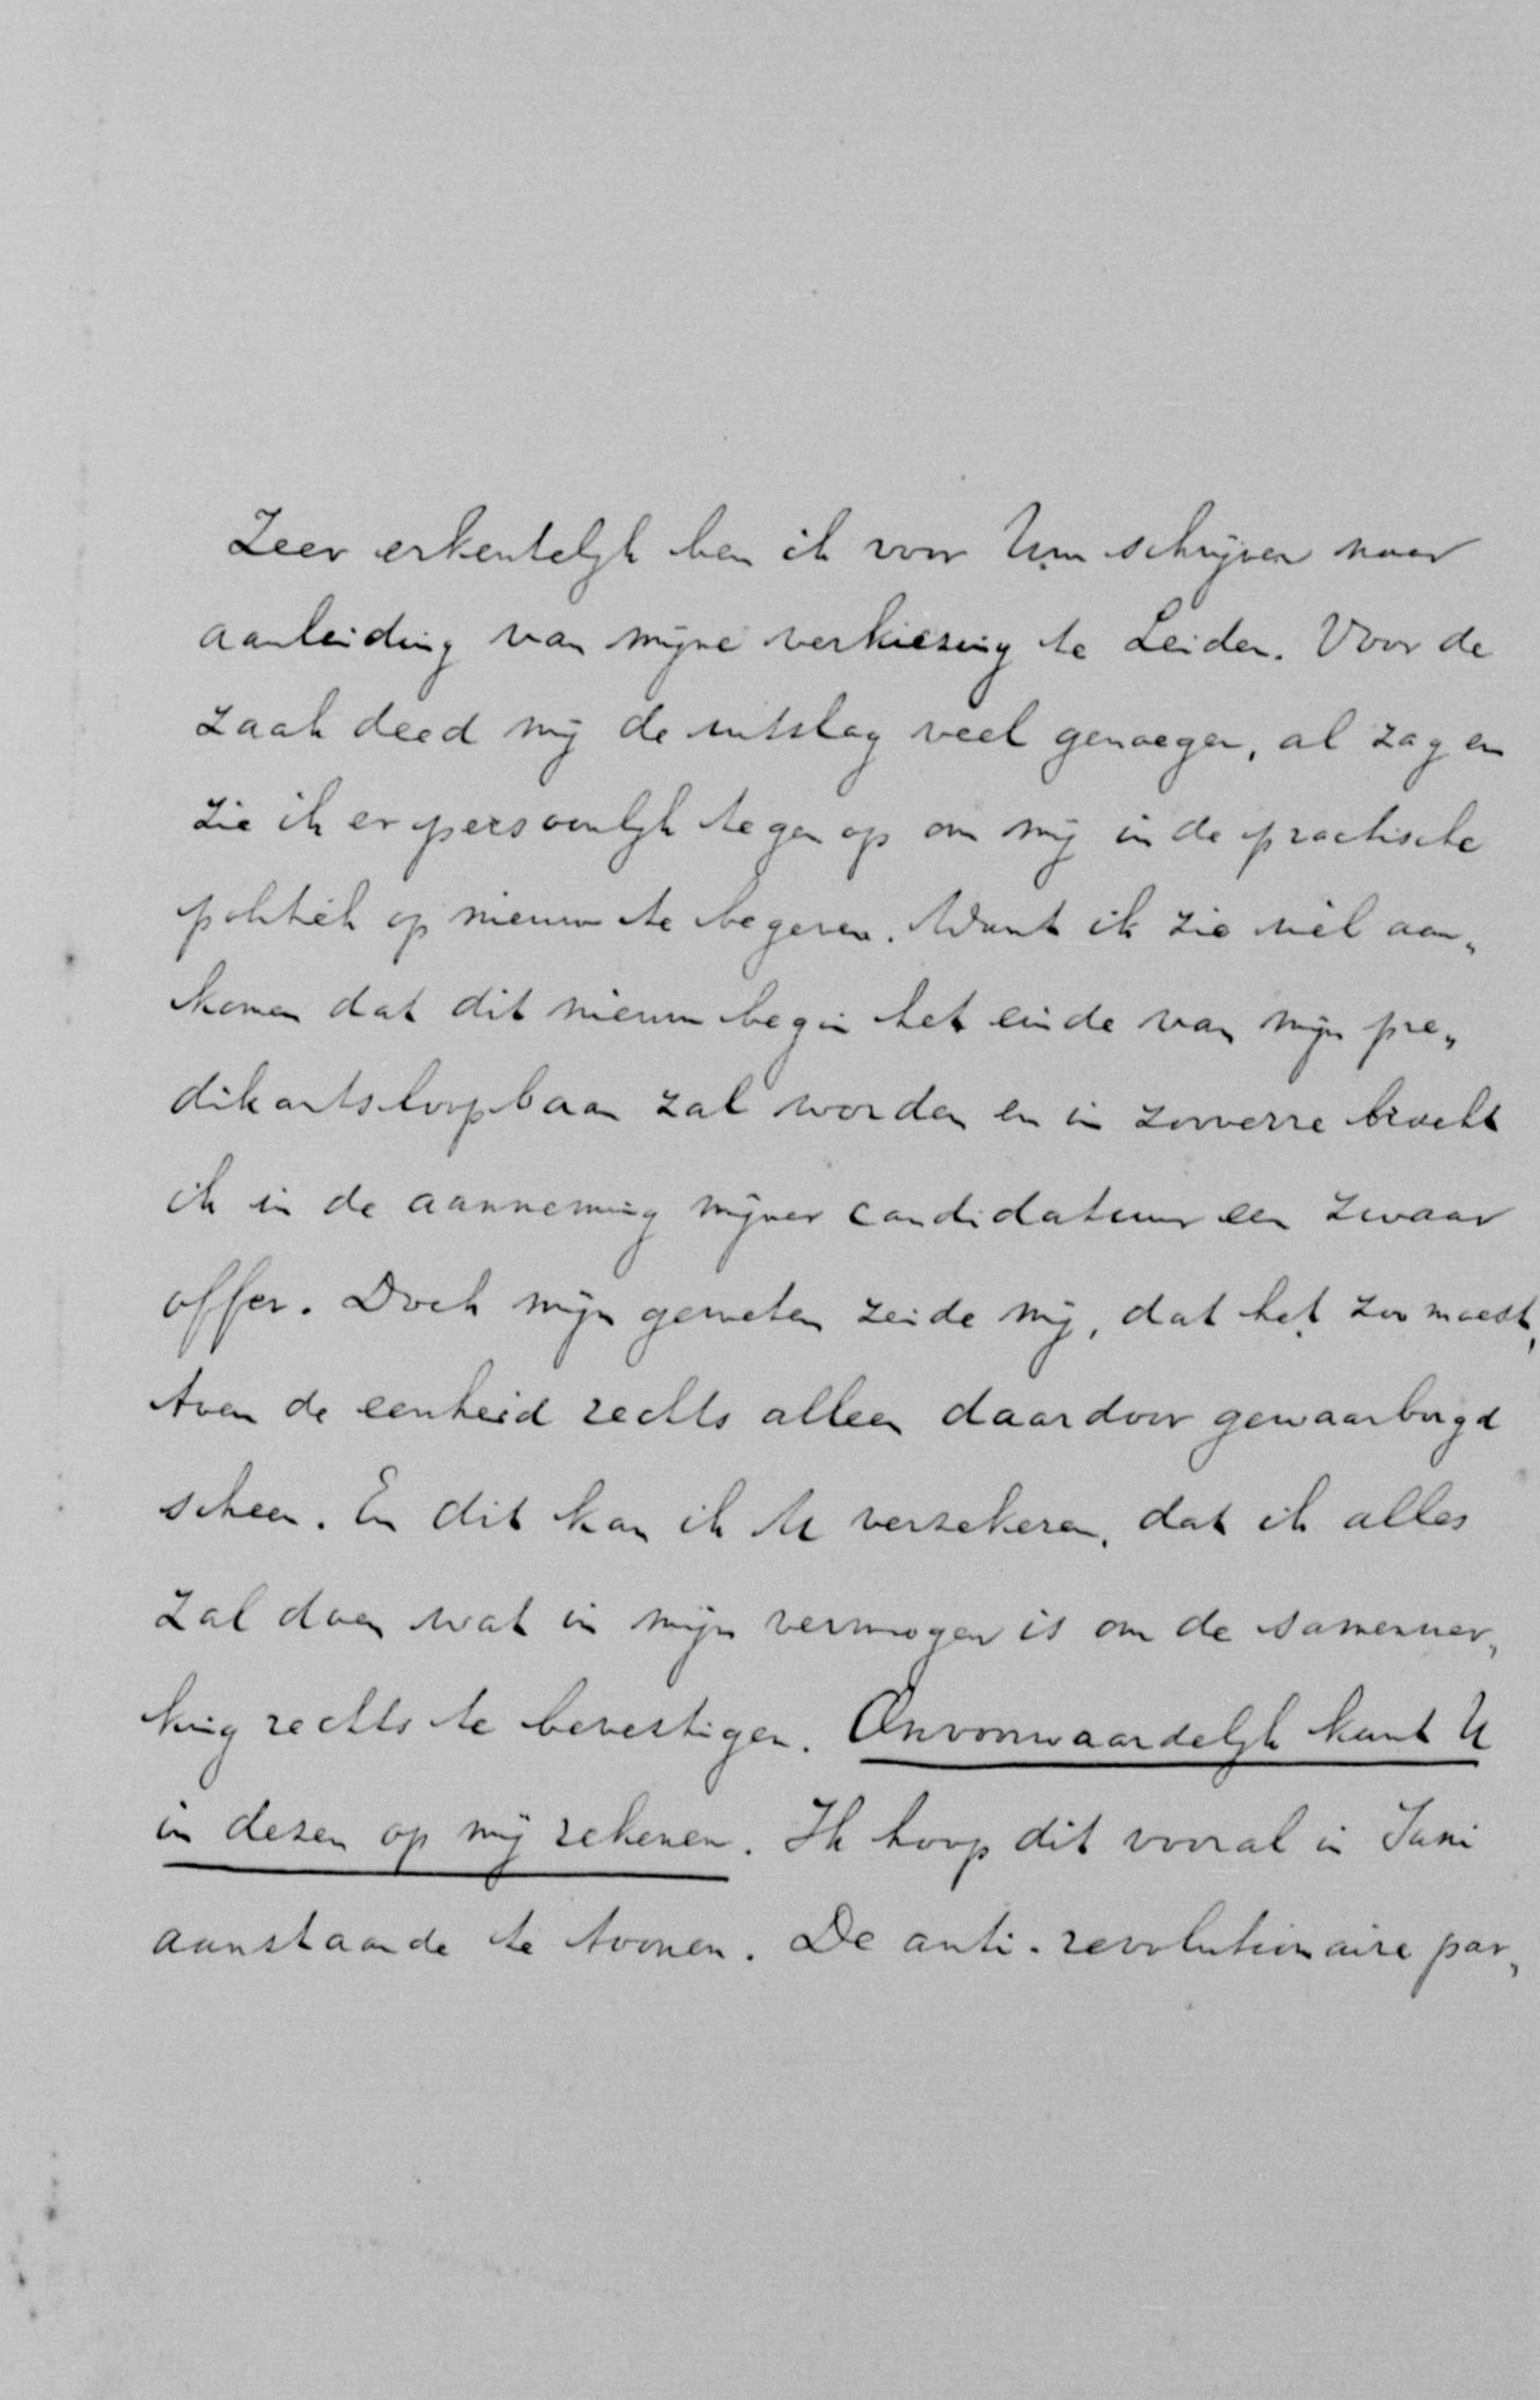 Zeer erkentelijk ben ik voor Uw schrijven naar
aanleiding van mijne verkiezing te Leiden. Voor de
zaak deed mij de uitslag veel genoegen, al zag en
zie ik er persoonlijk tegen op om mij in de practische
politiek op nieuw te begeven. Want ik zie wèl aan„
komen dat dit nieuw begin het einde van mijn pre„
dikantsloopbaan zal worden en in zooverre bracht
ik in de aanneming mijner candidatuur een zwaar
offer. Doch mijn geweten zeide mij, dat het zoo moest,
toen de eenheid rechts alleen daardoor gewaarborgd
scheen. En dit kan ik U verzekeren, dat ik alles
zal doen wat in mijn vermogen is om de samenwer„
king rechts te bevestigen. Onvoorwaardelijk kunt U
in dezen op mij rekenen. Ik hoop dit vooral in Juni
aanstaande te toonen. De anti-revolutionaire par„